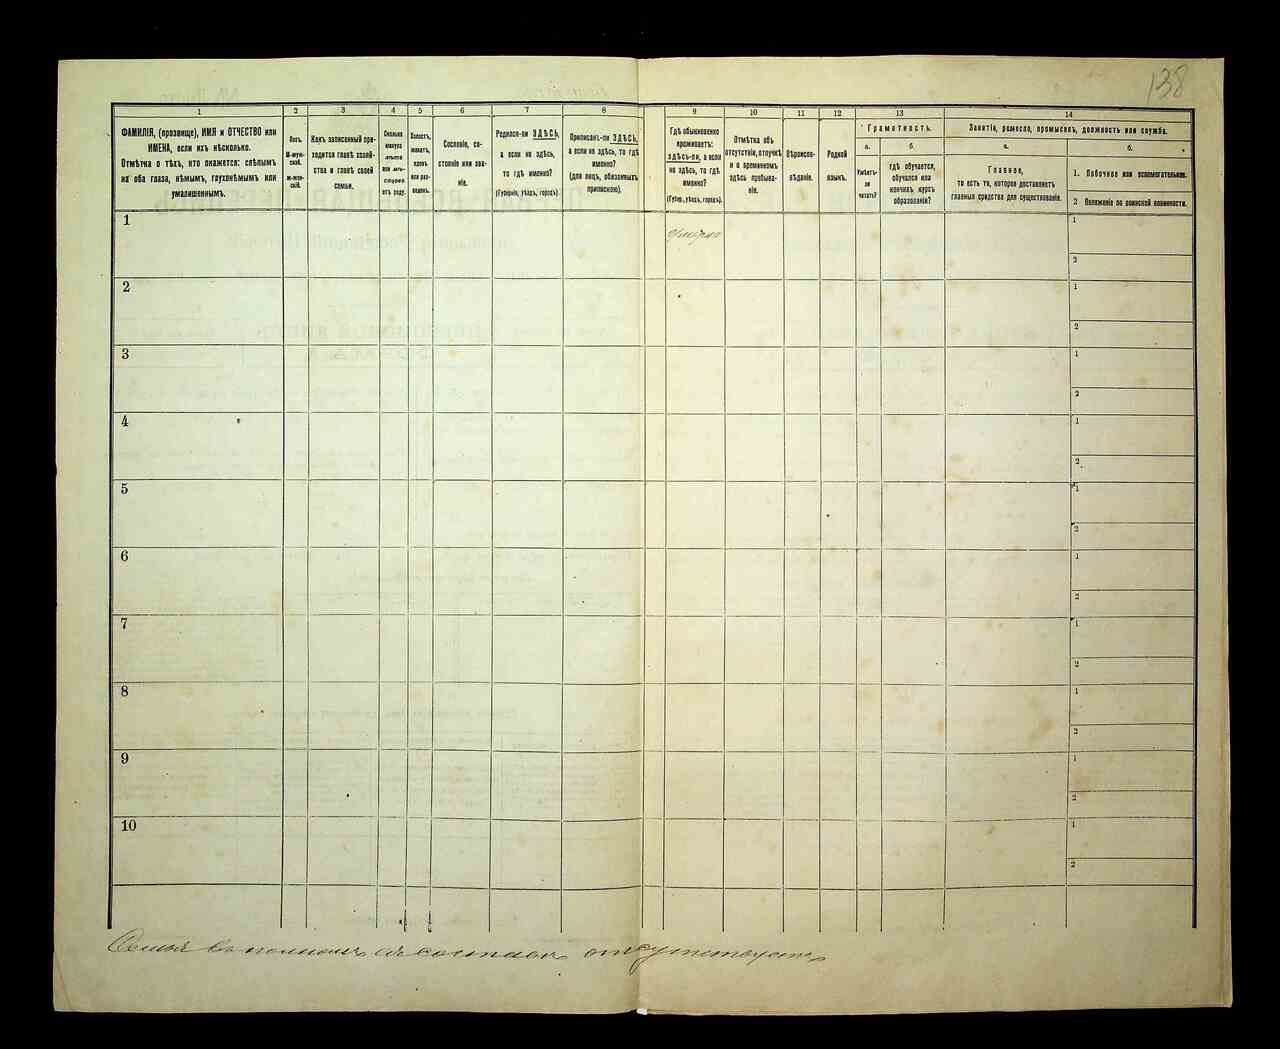 138
1
2
3
4
5
6
7
8
9
10
11
12
13
14
ФАМИЛІЯ, (прозвище), ИМЯ и ОТЧЕСТВО или
ИМЕНА, если ихъ нѣсколько.
Отмѣтка о тѣхъ, кто окажется: слѣпымъ
на оба глаза, нѣмымъ, глухонѣмымъ или
умалишеннымъ.
Полъ.
М-муж-
ской.
ж-жен-
скій.
Какъ записанный при-
ходится главѣ хозяй-
ства и главѣ своей
семьи.
Сколько
минуло
лѣтъ
или мѣ-
сяцевъ
отъ роду.
Холостъ,
женатъ,
вдовъ
или раз-
веденъ.
Сословіе, со-
стояніе или зва-
ніе.
Родился-ли ЗДѢСЬ,
а если не здѣсь,
то гдѣ именно?
(Губернія, уѣздъ, городъ).
Приписанъ-ли ЗДѢСЬ,
а если не здѣсь, то гдѣ
именно?
(для лицъ, обязанныхъ
припискою).
Гдѣ обыкновенно
проживаетъ:
здѣсь-ли, а если
не здѣсь, то гдѣ
именно?
(Губер., уѣздъ, городъ).
Отмѣтка объ
отсутствіи, отлучкѣ
и о временномъ
здѣсь пребыва-
ніи.
Вѣроиспо-
вѣданіе.
Родной
языкъ.
Грамотность.
а.
б.
Умѣетъ-
ли
читать?
гдѣ обучается,
обучался или
кончилъ курсъ
образованія?
Занятіе, ремесло, промыселъ, должность или служба.
а.
б.
Главное,
то есть то, которое доставляетъ
главныя средства для существованія.
1. Побочное или вспомогательное.
2 Положеніе по воинской повинности.
1
1
2
2
1
2
3
1
2
4
1
2
5
1
2
6
1
2
7
1
2
8
1
2
9
1
2
10
1
2
Семья въ полномъ составѣ отсутствуетъ